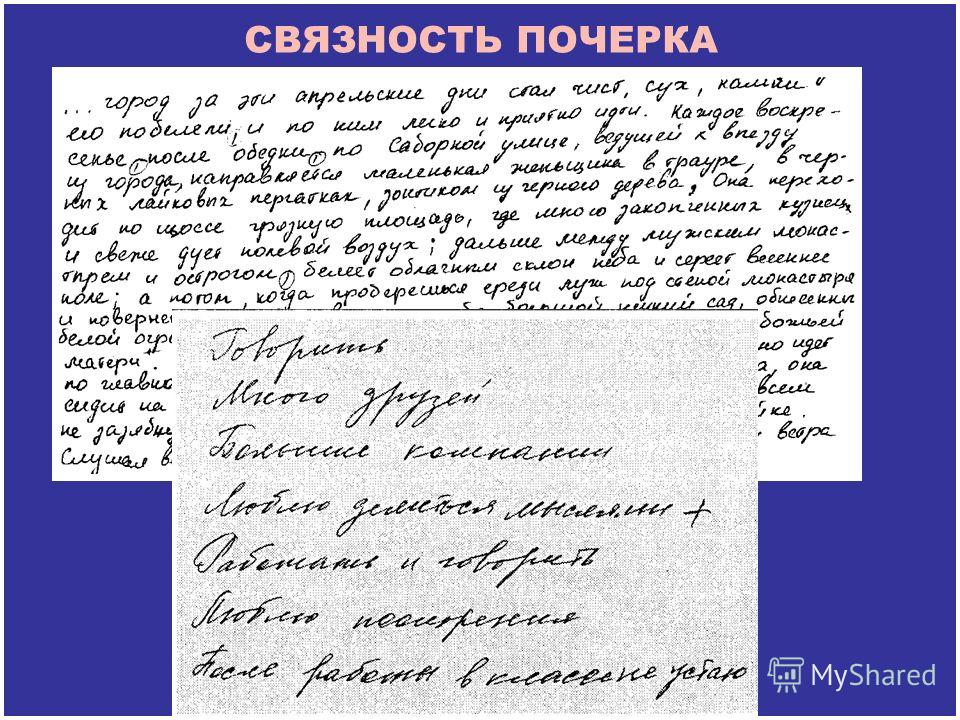 СВЯЗНОСТЬ ПОЧЕРКА
... город за эти апрельские дни стал чист, сух, камни
его побелели, и по ним легко и приятно идти. Каждое воскре-
сенье после обедни по Саборной улице, ведущей к выезду
из города, направляется маленькая женьщина в трауре, в чер-
ных лайковых перчатках, зонтиком из черного дерева. Она перехо-
дит по щоссе грязную площадь, где много закопченных кузниц
и свежо дует полевой воздух; дальше между мужским монас-
тырем и острогом белеет облачным склон неба и сереет весеннее
поле; а потом, когда проберешься среди луж под стеной монастыря
и повернешь большой низкий сад, обнесенный
белой божьей
матери. идет
по она
сидит на всем
не
Слушая ветра
Говорить
Много друзей
Большие компании
Люблю делиться мыслями +
Работать и говорить
Люблю поощрения
После работы в классе не устаю
MyShared